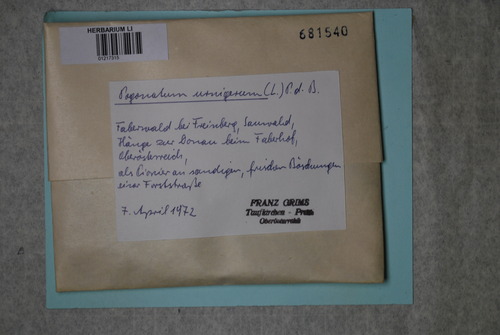 HERBARIUM LI
01217315
681540
Pogonatum urnigerum (L.) P. d. B.
Faberwald bei Freinberg, Sauwald,
Hänge zur Donau beim Faberhof,
Oberösterreich,
als Pionier an sandigen, frischen Böschungen
einer Forststraße
7. April 1972
FRANZ GRIMS
Taufkirchen - Pram
Oberösterreich